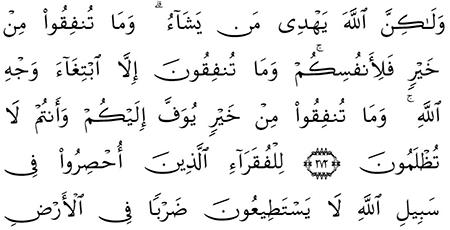 وَلَٰكِنَّ ٱللَّهَ يَهْدِى مَن يَشَآءُ ۗ وَمَا تُنفِقُوا۟ مِنْ
خَيْرٍ فَلِأَنفُسِكُمْ ۚ وَمَا تُنفِقُونَ إِلَّا ٱبْتِغَآءَ وَجْهِ
ٱللَّهِ ۚ وَمَا تُنفِقُوا۟ مِنْ خَيْرٍ يُوَفَّ إِلَيْكُمْ وَأَنتُمْ لَا
تُظْلَمُونَ ﴿٢٧٢﴾ لِلْفُقَرَآءِ ٱلَّذِينَ أُحْصِرُوا۟ فِى
سَبِيلِ ٱللَّهِ لَا يَسْتَطِيعُونَ ضَرْبًا فِى ٱلْأَرْضِ